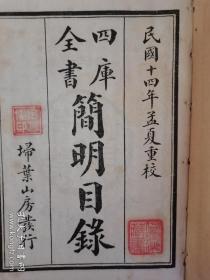 民國十四年孟夏重校
四庫
全書
簡明目錄
掃葉山房發行